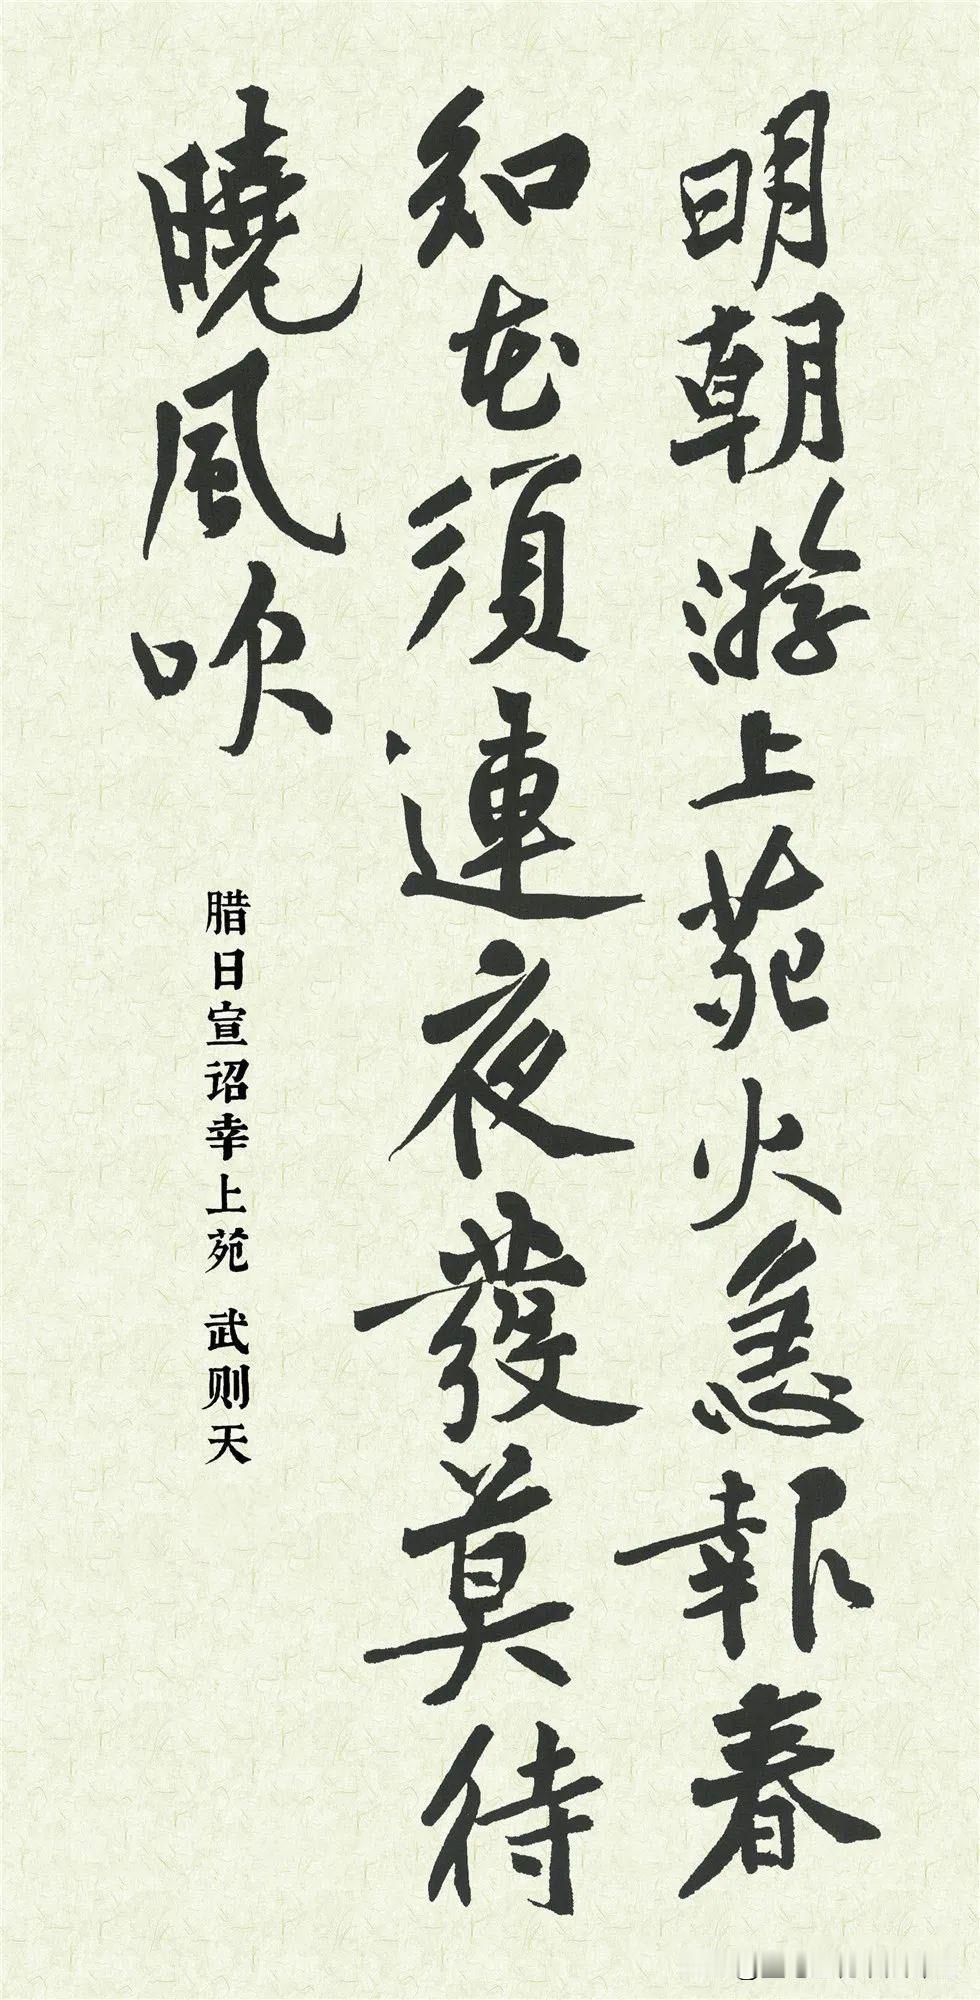 明朝游上苑火急報春
知花須連夜發莫待
曉風吹
腊日宣诏幸上苑 武则天